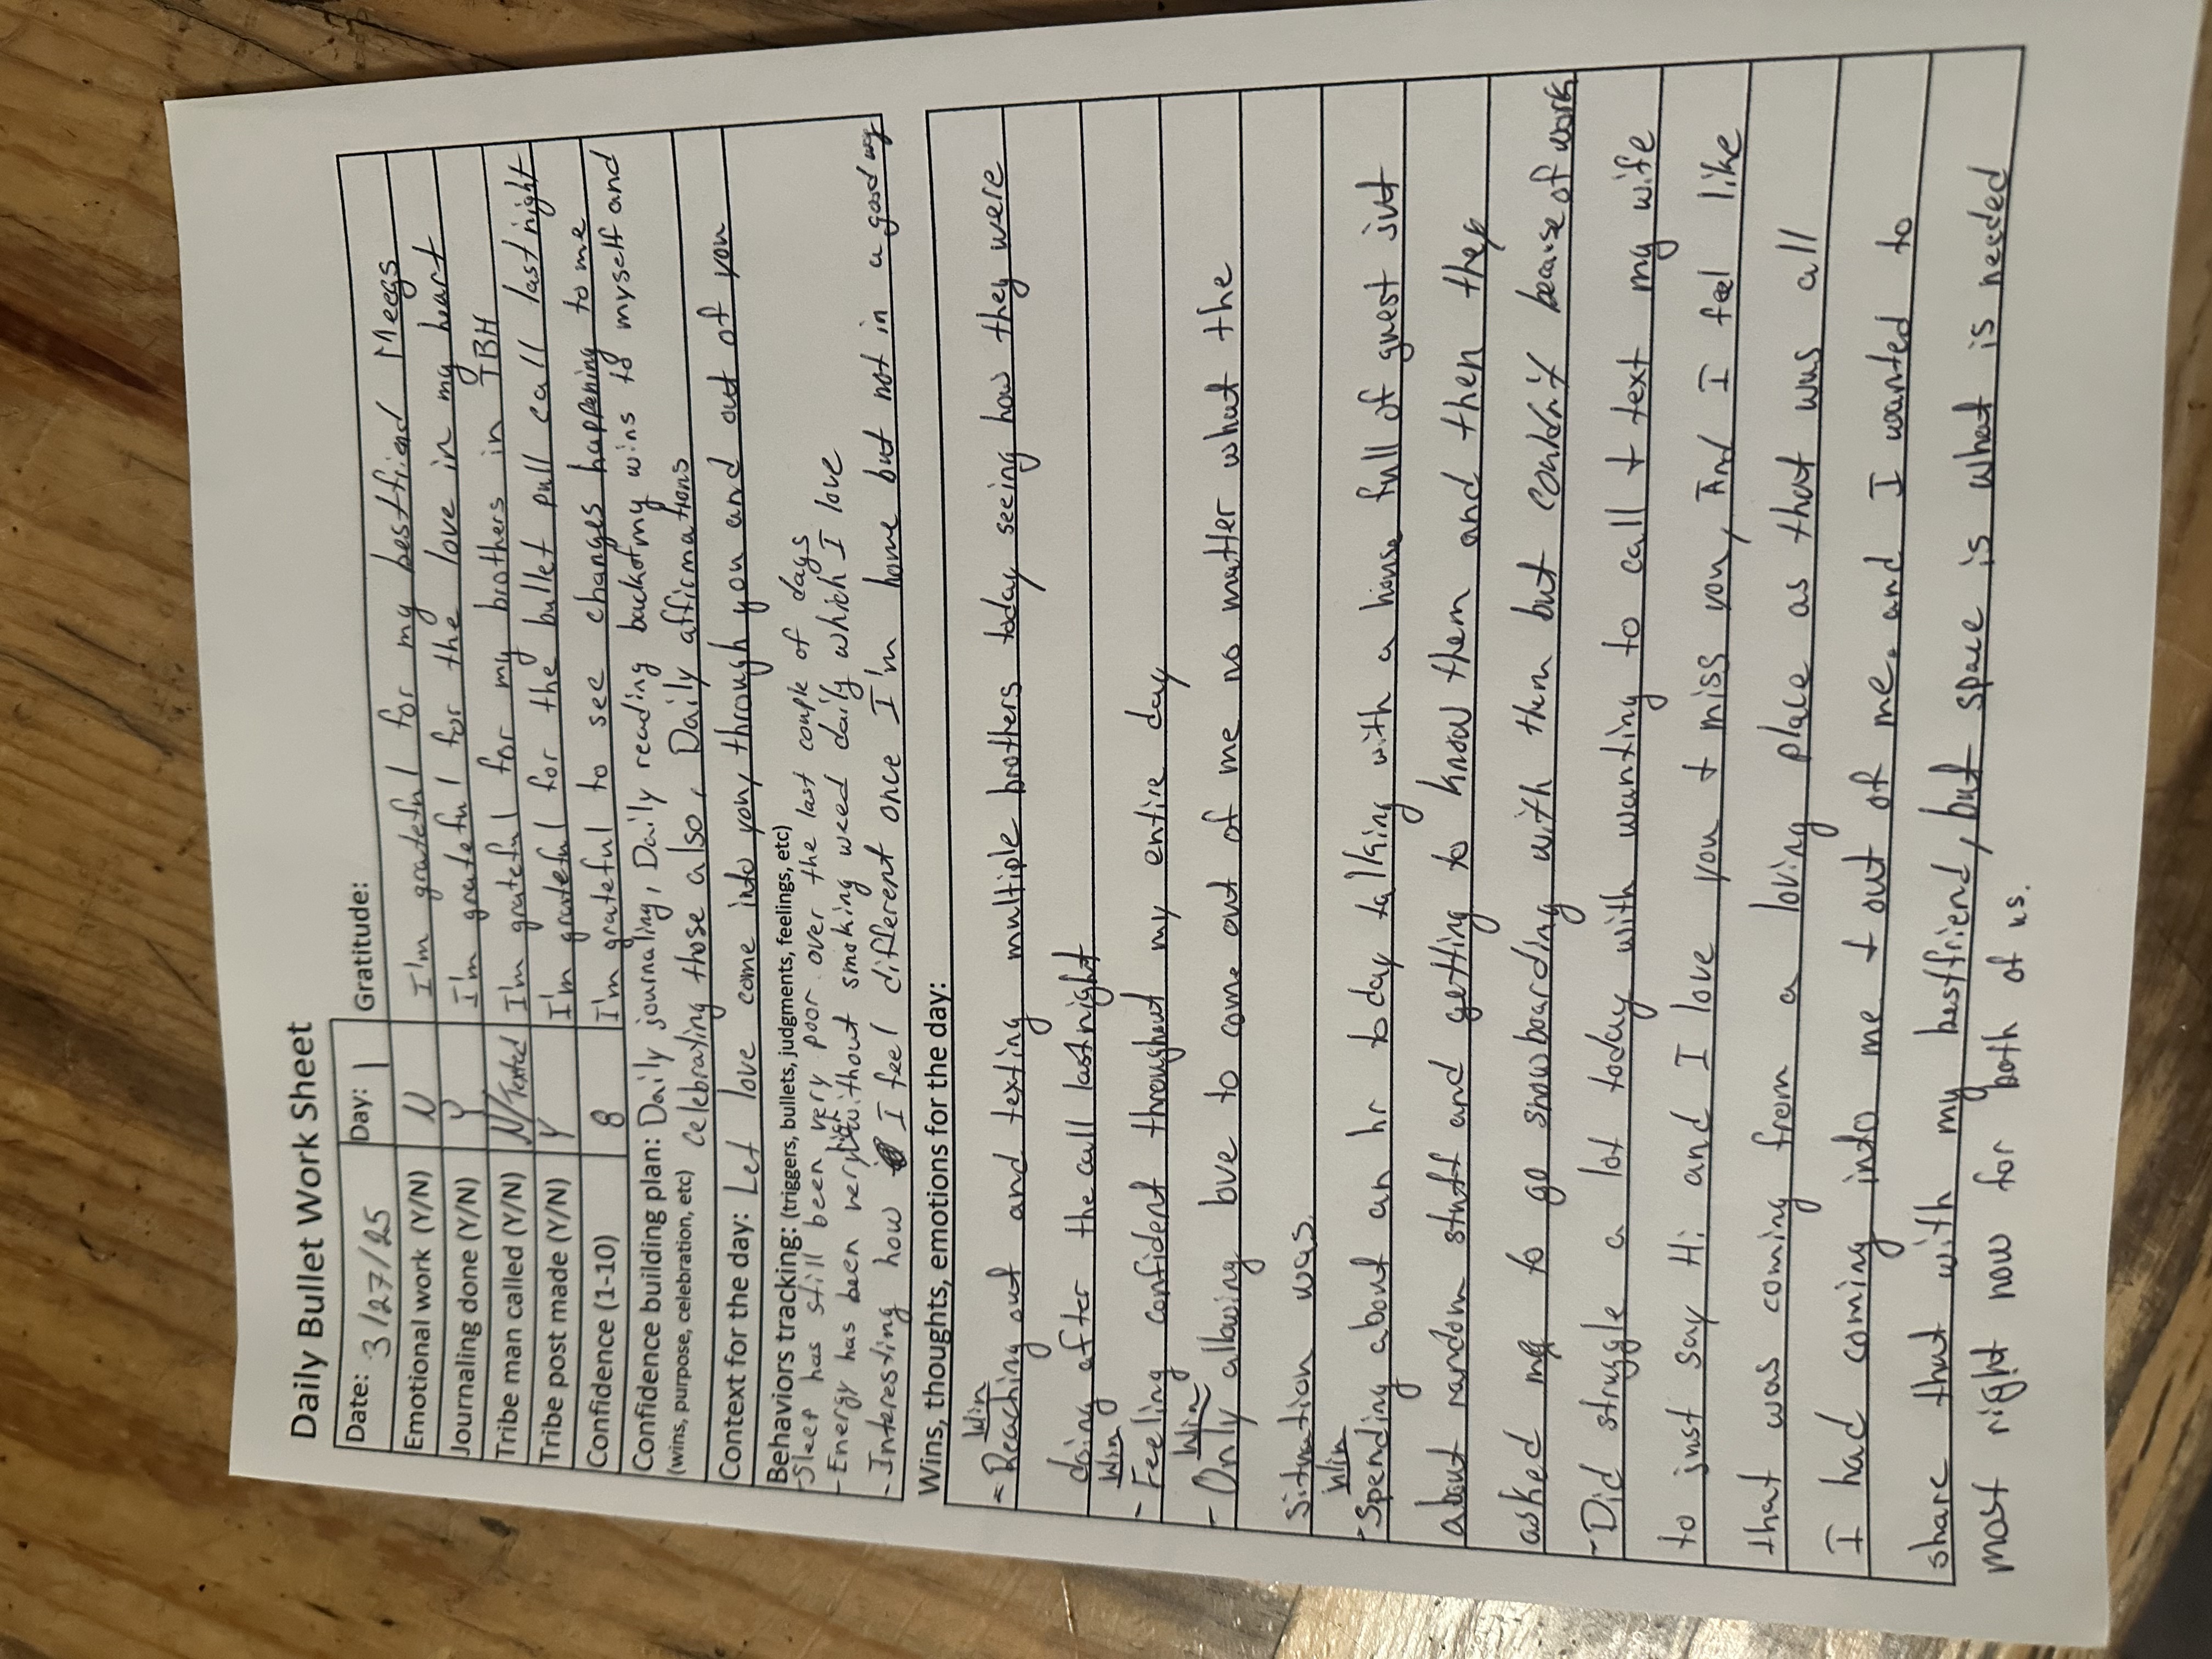 Daily Bullet Work Sheet
Date: 3/27/25 Day: 1 Gratitude:
Emotional work (Y/N) N I'm grateful for my bestfriend Meegs
Journaling done (Y/N) Y I'm grateful for the love in my heart
Tribe man called (Y/N) N/Texted I'm grateful for my brothers in TBH
Tribe post made (Y/N) Y I'm grateful for the bullet pull call last night
Confidence (1-10) 8 I'm grateful to see changes happening to me
Confidence building plan: Daily journaling, Daily reading back of my wins to myself and
(wins, purpose, celebration, etc) celebrating those also, Daily affirmations
Context for the day: Let love come into you, through you and out of you
Behaviors tracking: (triggers, bullets, judgments, feelings, etc)
- Sleep has still been very poor over the last couple of days
- Energy has been very high without smoking weed daily which I love
- Interesting how I feel different once I'm home but not in a good way
Wins, thoughts, emotions for the day:
Win
- Reaching out and texting multiple brothers today seeing how they were
doing after the call last night
Win
- Feeling confident throughout my entire day
Win
- Only allowing love to come out of me no matter what the
situation was.
Win
- Spending about an hr today talking with a house full of guest just
about random stuff and getting to know them and then they
asked me to go snowboarding with them but couldn't because of work
- Did struggle a lot today with wanting to call + text my wife
to just say Hi and I love you + miss you, And I feel like
that was coming from a loving place as that was all
I had coming into me + out of me. and I wanted to
share that with my bestfriend, but space is what is needed
most right now for both of us.